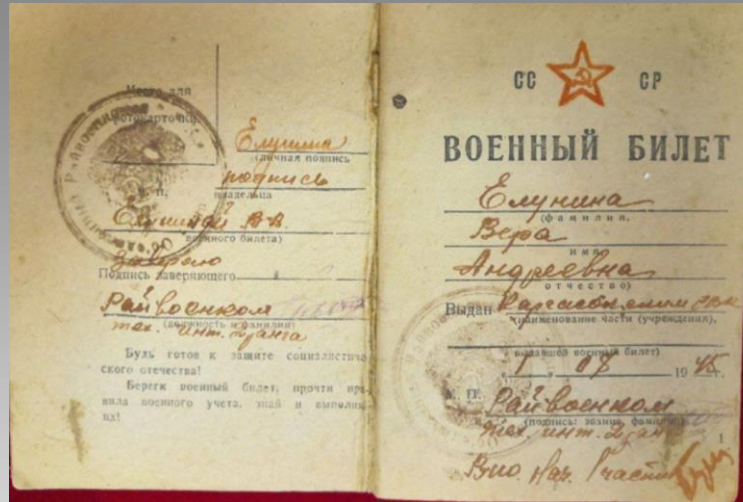 Место для
фотокарточки
Елунина
(личная подпись
подпись
владельца
Елуниной В.А.
военного билета)
Заверяю
Подпись заверяющего
Райвоенком
(должность и фамилия)
тех. инт.
Будь готов к защите социалистиче
ского отечества!
Береги военный билет, прочти пра
вила военного учета, знай и выполняй
их!
СС СР
ВОЕННЫЙ БИЛЕТ
Елунина
(фамилия,
Вера
имя
Андреевна
отчество)
Выдан
(наименование части (учреждения),
выдавшей военный билет)
1945
М. П.
Райвоенком
(подпись: звание, фамилия)
тех. инт.
1
Вио Нач. 1 части